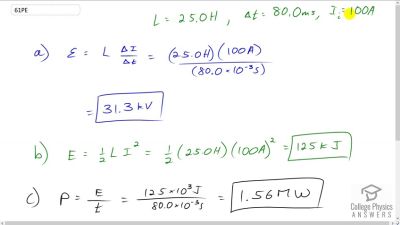 61PE
L = 25.0H , Δt = 80.0ms, I = 100A
a) ε = L ΔI/Δt = (25.0H)(100A)/(80.0×10⁻³s)
= 31.3 kV
b) E = ½ L I² = ½ (25.0H)(100A)² = 125 kJ
c) P = E/t = 125×10³J/80.0×10⁻³s = 1.56 MW
College Physics
ANSWERS